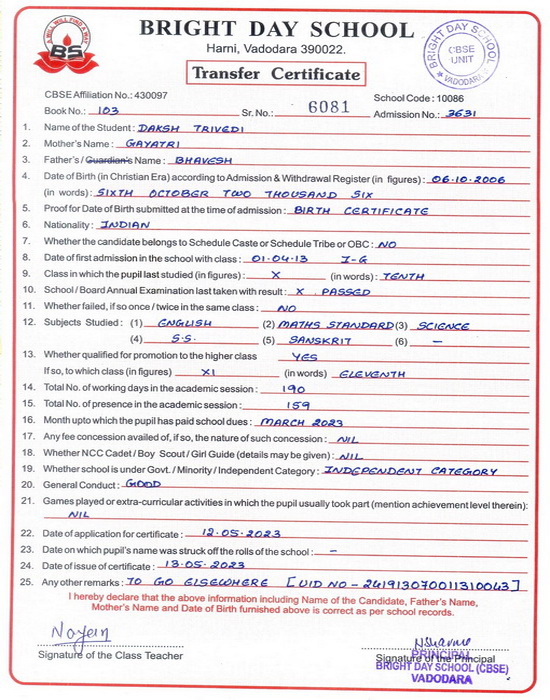 A WILL WILL FIND A WAY
BS
BRIGHT DAY SCHOOL
Harni, Vadodara 390022.
Transfer Certificate
BRIGHT DAY SCHOOL
CBSE
UNIT
VADODARA
CBSE Affiliation No.: 430097
School Code : 10086
Book No.: 103 Sr. No.: 6081 Admission No.: 3631
1. Name of the Student : DAKSH TRIVEDI
2. Mother's Name : GAYATRI
3. Father's / Guardian's Name : BHAVESH
4. Date of Birth (in Christian Era) according to Admission & Withdrawal Register (in figures) : 06.10.2006
(in words) : SIXTH OCTOBER TWO THOUSAND SIX
5. Proof for Date of Birth submitted at the time of admission : BIRTH CERTIFICATE
6. Nationality : INDIAN
7. Whether the candidate belongs to Schedule Caste or Schedule Tribe or OBC : NO
8. Date of first admission in the school with class : 01.04.13 I-G
9. Class in which the pupil last studied (in figures) : X (in words) : TENTH
10. School / Board Annual Examination last taken with result : X PASSED
11. Whether failed, if so once / twice in the same class : NO
12. Subjects Studied : (1) ENGLISH (2) MATHS STANDARD (3) SCIENCE
(4) S.S. (5) SANSKRIT (6) –
13. Whether qualified for promotion to the higher class YES
If so, to which class (in figures) XI (in words) ELEVENTH
14. Total No. of working days in the academic session : 190
15. Total No. of presence in the academic session : 159
16. Month upto which the pupil has paid school dues : MARCH 2023
17. Any fee concession availed of, if so, the nature of such concession : NIL
18. Whether NCC Cadet / Boy Scout / Girl Guide (details may be given) : NIL
19. Whether school is under Govt. / Minority / Independent Category : INDEPENDENT CATEGORY
20. General Conduct : GOOD
21. Games played or extra-curricular activities in which the pupil usually took part (mention achievement level therein) :
NIL
22. Date of application for certificate : 12.05.2023
23. Date on which pupil's name was struck off the rolls of the school : –
24. Date of issue of certificate : 13.05.2023
25. Any other remarks : TO GO ELSEWHERE [UID NO - 241913070011310043]
I hereby declare that the above information including Name of the Candidate, Father's Name,
Mother's Name and Date of Birth furnished above is correct as per school records.
Signature of the Class Teacher
Signature of the Principal
PRINCIPAL
BRIGHT DAY SCHOOL (CBSE)
VADODARA